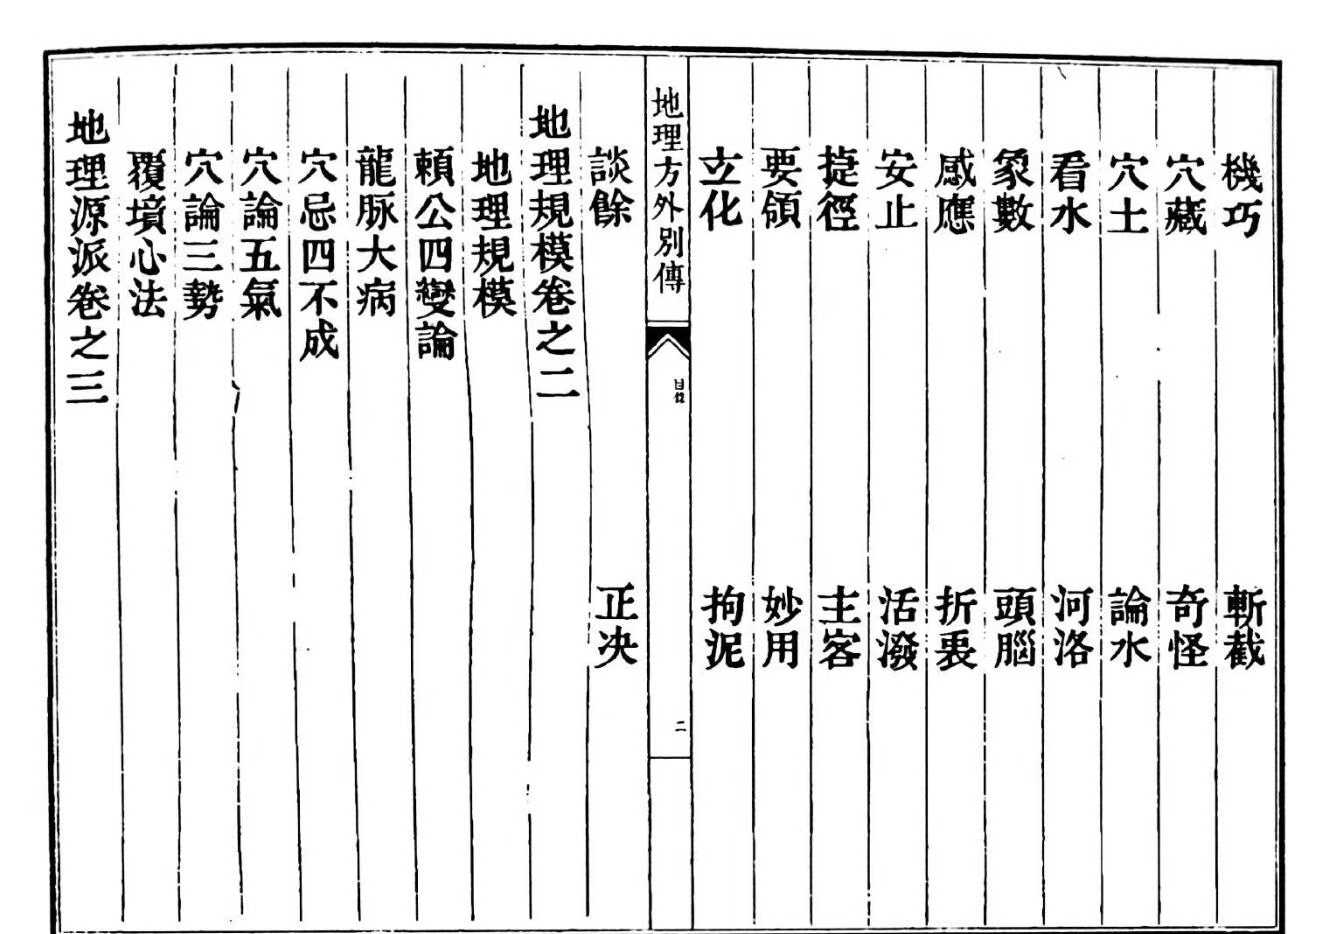 機巧　斬截
穴藏　奇怪
穴土　論水
看水　河洛
象數　頭腦
感應　折衷
安止　活潑
捷徑　主客
要領　妙用
立化　拘泥
地理方外別傳　目錄　二
談餘　正决
地理規模卷之二
地理規模
頼公四變論
龍脉大病
穴忌四不成
穴論五氣
穴論三勢
覆墳心法
地理源派卷之三